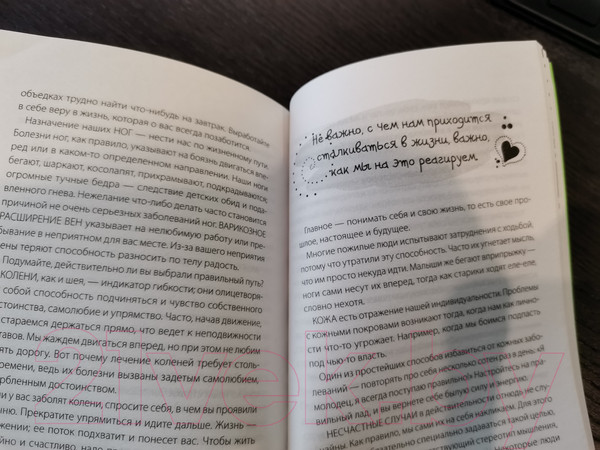 объедках трудно найти что-нибудь на завтрак. Выработайте
в себе веру в жизнь, которая о вас всегда позаботится.
Назначение наших НОГ — нести нас по жизненному пути.
Болезни ног, как правило, указывают на боязнь двигаться впе-
ред или в каком-то определенном направлении. Наши ноги
бегают, шаркают, косолапят, прихрамывают, подкрадываются;
огромные тучные бедра — следствие детских обид и пода-
вленного гнева. Нежелание что-либо делать часто становится
причиной не очень серьезных заболеваний ног. ВАРИКОЗНОЕ
РАСШИРЕНИЕ ВЕН указывает на нелюбимую работу или пре-
бывание в неприятном для вас месте. Из-за вашего неприятия
вены теряют способность разносить по телу радость.
Подумайте, действительно ли вы выбрали правильный путь?
КОЛЕНИ, как и шея, — индикатор гибкости; они олицетворя-
собой способность подчиняться и чувство собственного
достоинства, самолюбие и упрямство. Часто, начав движение,
стараемся держаться прямо, что ведет к неподвижности
ставов. Мы жаждем двигаться вперед, но при этом не любим
ять дорогу. Вот почему лечение коленей требует столь-
времени, ведь их болезни вызваны задетым самолюбием,
рбленным достоинством.
и у вас заболят колени, спросите себя, в чем вы проявили
. Прекратите упрямиться и идите дальше. Жизнь —
ение; ее поток подхватит и понесет вас. Чтобы жить
йно и счастливо, надо
Не важно, с чем нам приходится
сталкиваться в жизни, важно,
как мы на это реагируем.
Главное — понимать себя и свою жизнь, то есть свое про-
шлое, настоящее и будущее.
Многие пожилые люди испытывают затруднения с ходьбой,
потому что утратили эту способность. Часто их угнетает мысль,
что им просто некуда идти. Малыши же бегают вприпрыжку —
ноги сами несут их вперед, тогда как старики ходят еле-еле,
словно нехотя.
КОЖА есть отражение нашей индивидуальности. Проблемы
с кожными покровами возникают тогда, когда нам как лично-
сти что-то угрожает. Например, когда мы боимся подпасть
под чью-то власть.
Один из простейших способов избавиться от кожных забо-
леваний — повторять про себя несколько сотен раз в день: «Я
молодец, я всегда поступаю правильно». Настройтесь на пра-
вильный лад, и вы вернете себе былую силу и энергию.
НЕСЧАСТНЫЕ СЛУЧАИ в действительности отнюдь не слу-
чайны. Как правило, мы сами их на себя накликаем. Для этого
не обязательно специально задаваться такой целью,
соответствующий стереотип мышления,
Некоторые люди